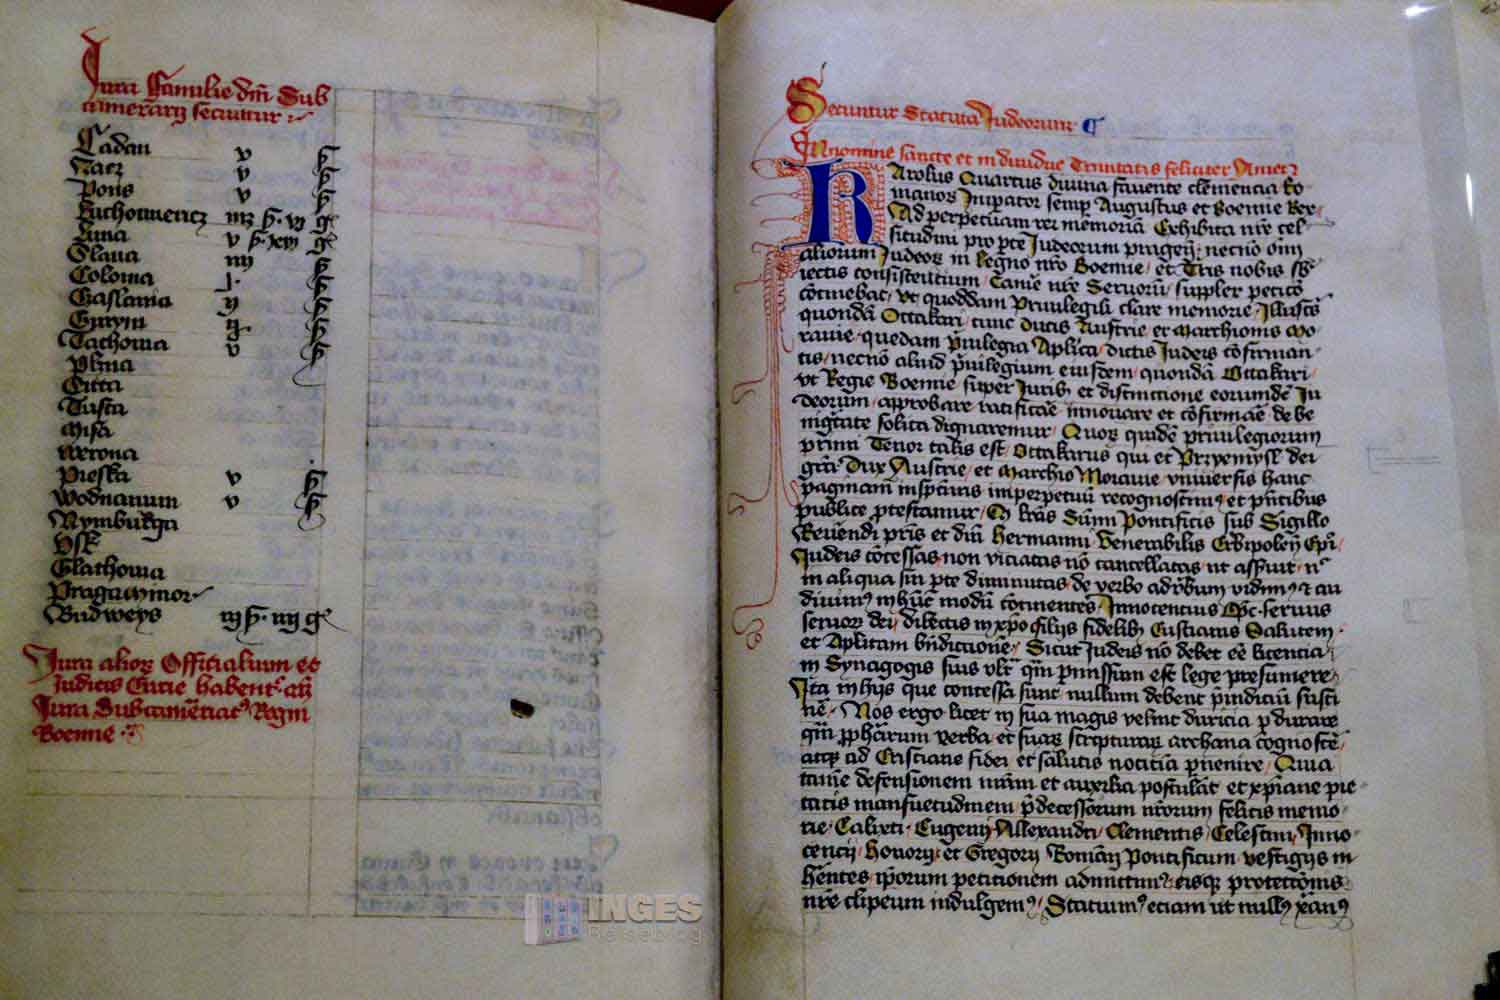 Iura Familie dni Sub
camerarij secuntur
Cadan v
Nacz v
Pons v
Luna v
Slana iiij
Colonia
Czaslauia ij
Gurym
Tachouia v
Plzna
Citta
Tusta
Misa
Verona
Pieska v
Wodnanum v
Nymburga
Vsk
Glathouia
Budweys
Iura alior Officialium et
Iudicis Curie habent
Iura Subcamerariat Regni
Boemie
Secuntur Statuta Iudeorum
In nomine sancte et indiuidue Trinitatis feliciter Amen
Karolus Quartus diuina fauente clemencia Ro
manor Imperator semp Augustus et Boemie Rex
Ad perpetuam rei memoriam Exhibita nre cel
situdini pro pte Iudeorum pragen necno oim
aliorum Iudeor in Regno nro Boemie et Tris nobis sb
iectis consistentium Camere nre Seruorum suppler peticio
continebat vt quoddam Priuilegij clare memorie Illustris
quondam Ottakari tunc ducis Austrie et Marchionis Mo
rauie quedam priuilegia Aplica dictis Iudeis cofirman
tis necno aliud priuilegium eiusdem quondam Ottakari
vt Regis Boemie super Iurib et distinctione eorumdem Iu
deorum approbare ratificare innouare et cofirmare de be
nigtate solita dignaremur Quor quidem priuilegiorum
primi Tenor talis est Ottakarus qui et Przyemysl dei
gra Dux Austrie et Marchio Morauie vniuersis hanc
paginam insptinis imperpetuu recognoscim et pntibus
publice ptestamur Q lras Sumi Pontificis sub Sigillo
Reuendi pris et dni Hermanni Venerabilis Erbipolen Epi
Iudeis cocessas non viciatas no cancellatas
in aliqua sui pte diminutas de verbo ad verbum vidim et au
diuim in huc modum continentes Innocentius Epc seruus
seruor dei dilectis in xpo filijs fidelib Cristianis Salutem
et Aplicam bndictione Sicut Iudeis no debet ee licentia
in Synagogis suis vltra qm pmissum est lege presumere
Ita in hijs que concessa sunt nullum debent piudicium susti
nere Nos ergo licet in sua magis velint duricia pdurare
qm pphetarum verba et suar scripturar archana cognoscere
atq ad Cristiane fidei et salutis noticia puenire Quia
tame defensionem nram et auxilia postulat et xpiane pie
tatis mansuetudinem pdecessorum nrorum felicis memo
rie Calixti Eugenij Allexandri Clementis Celestini Inno
cencij Honorij et Gregorij Romani Pontificum vestigijs in
herentes iporum petitionem admittim eisq protectionis
nre clipeum indulgem Statuim eciam ut nullus
INGES
Reiseblog